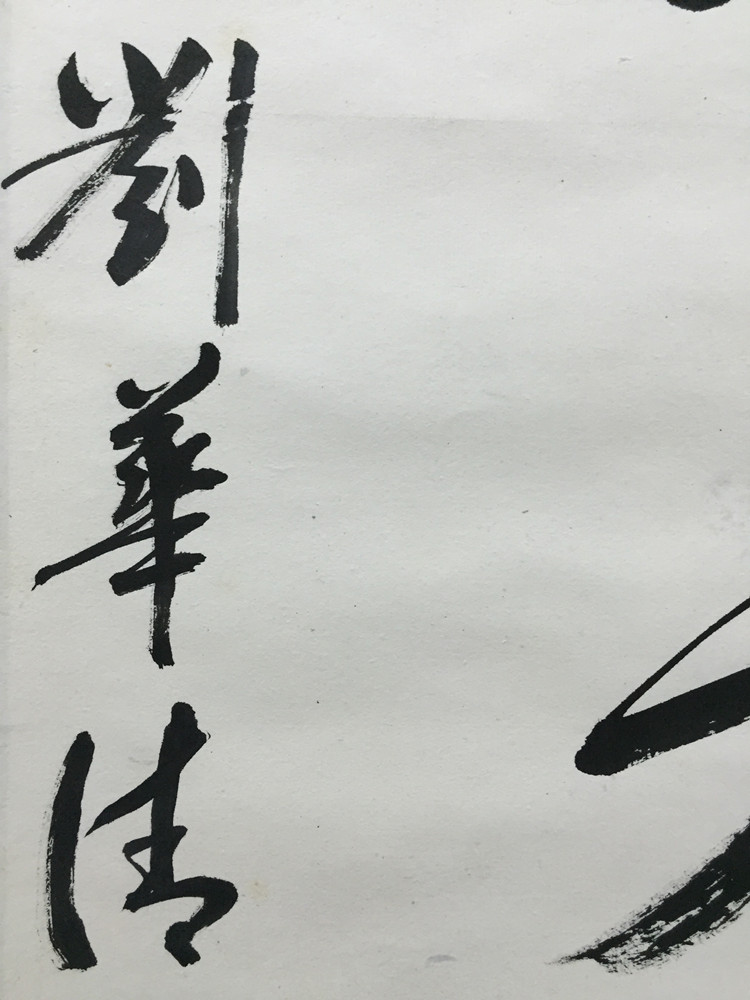 劉華清